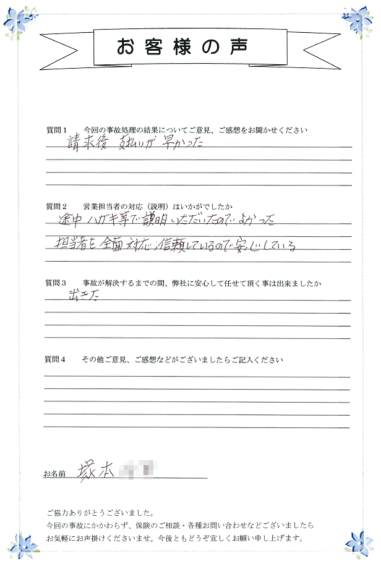 お客様の声
質問1 今回の事故処理の結果についてご意見、ご感想をお聞かせください
請求後 支払いが 早かった
質問2 営業担当者の対応(説明)はいかがでしたか
途中 ハガキ等で説明いただいたので よかった
担当者を全面対応 信頼しているので安心している
質問3 事故が解決するまでの間、弊社に安心して任せて頂く事は出来ましたか
出来た
質問4 その他ご意見、ご感想などがございましたらご記入ください
お名前 塚本
ご協力ありがとうございました。
今回の事故にかかわらず、保険のご相談・各種お問い合わせなどございましたら
お気軽にお声掛けくださいませ。今後ともどうぞ宜しくお願い申し上げます。